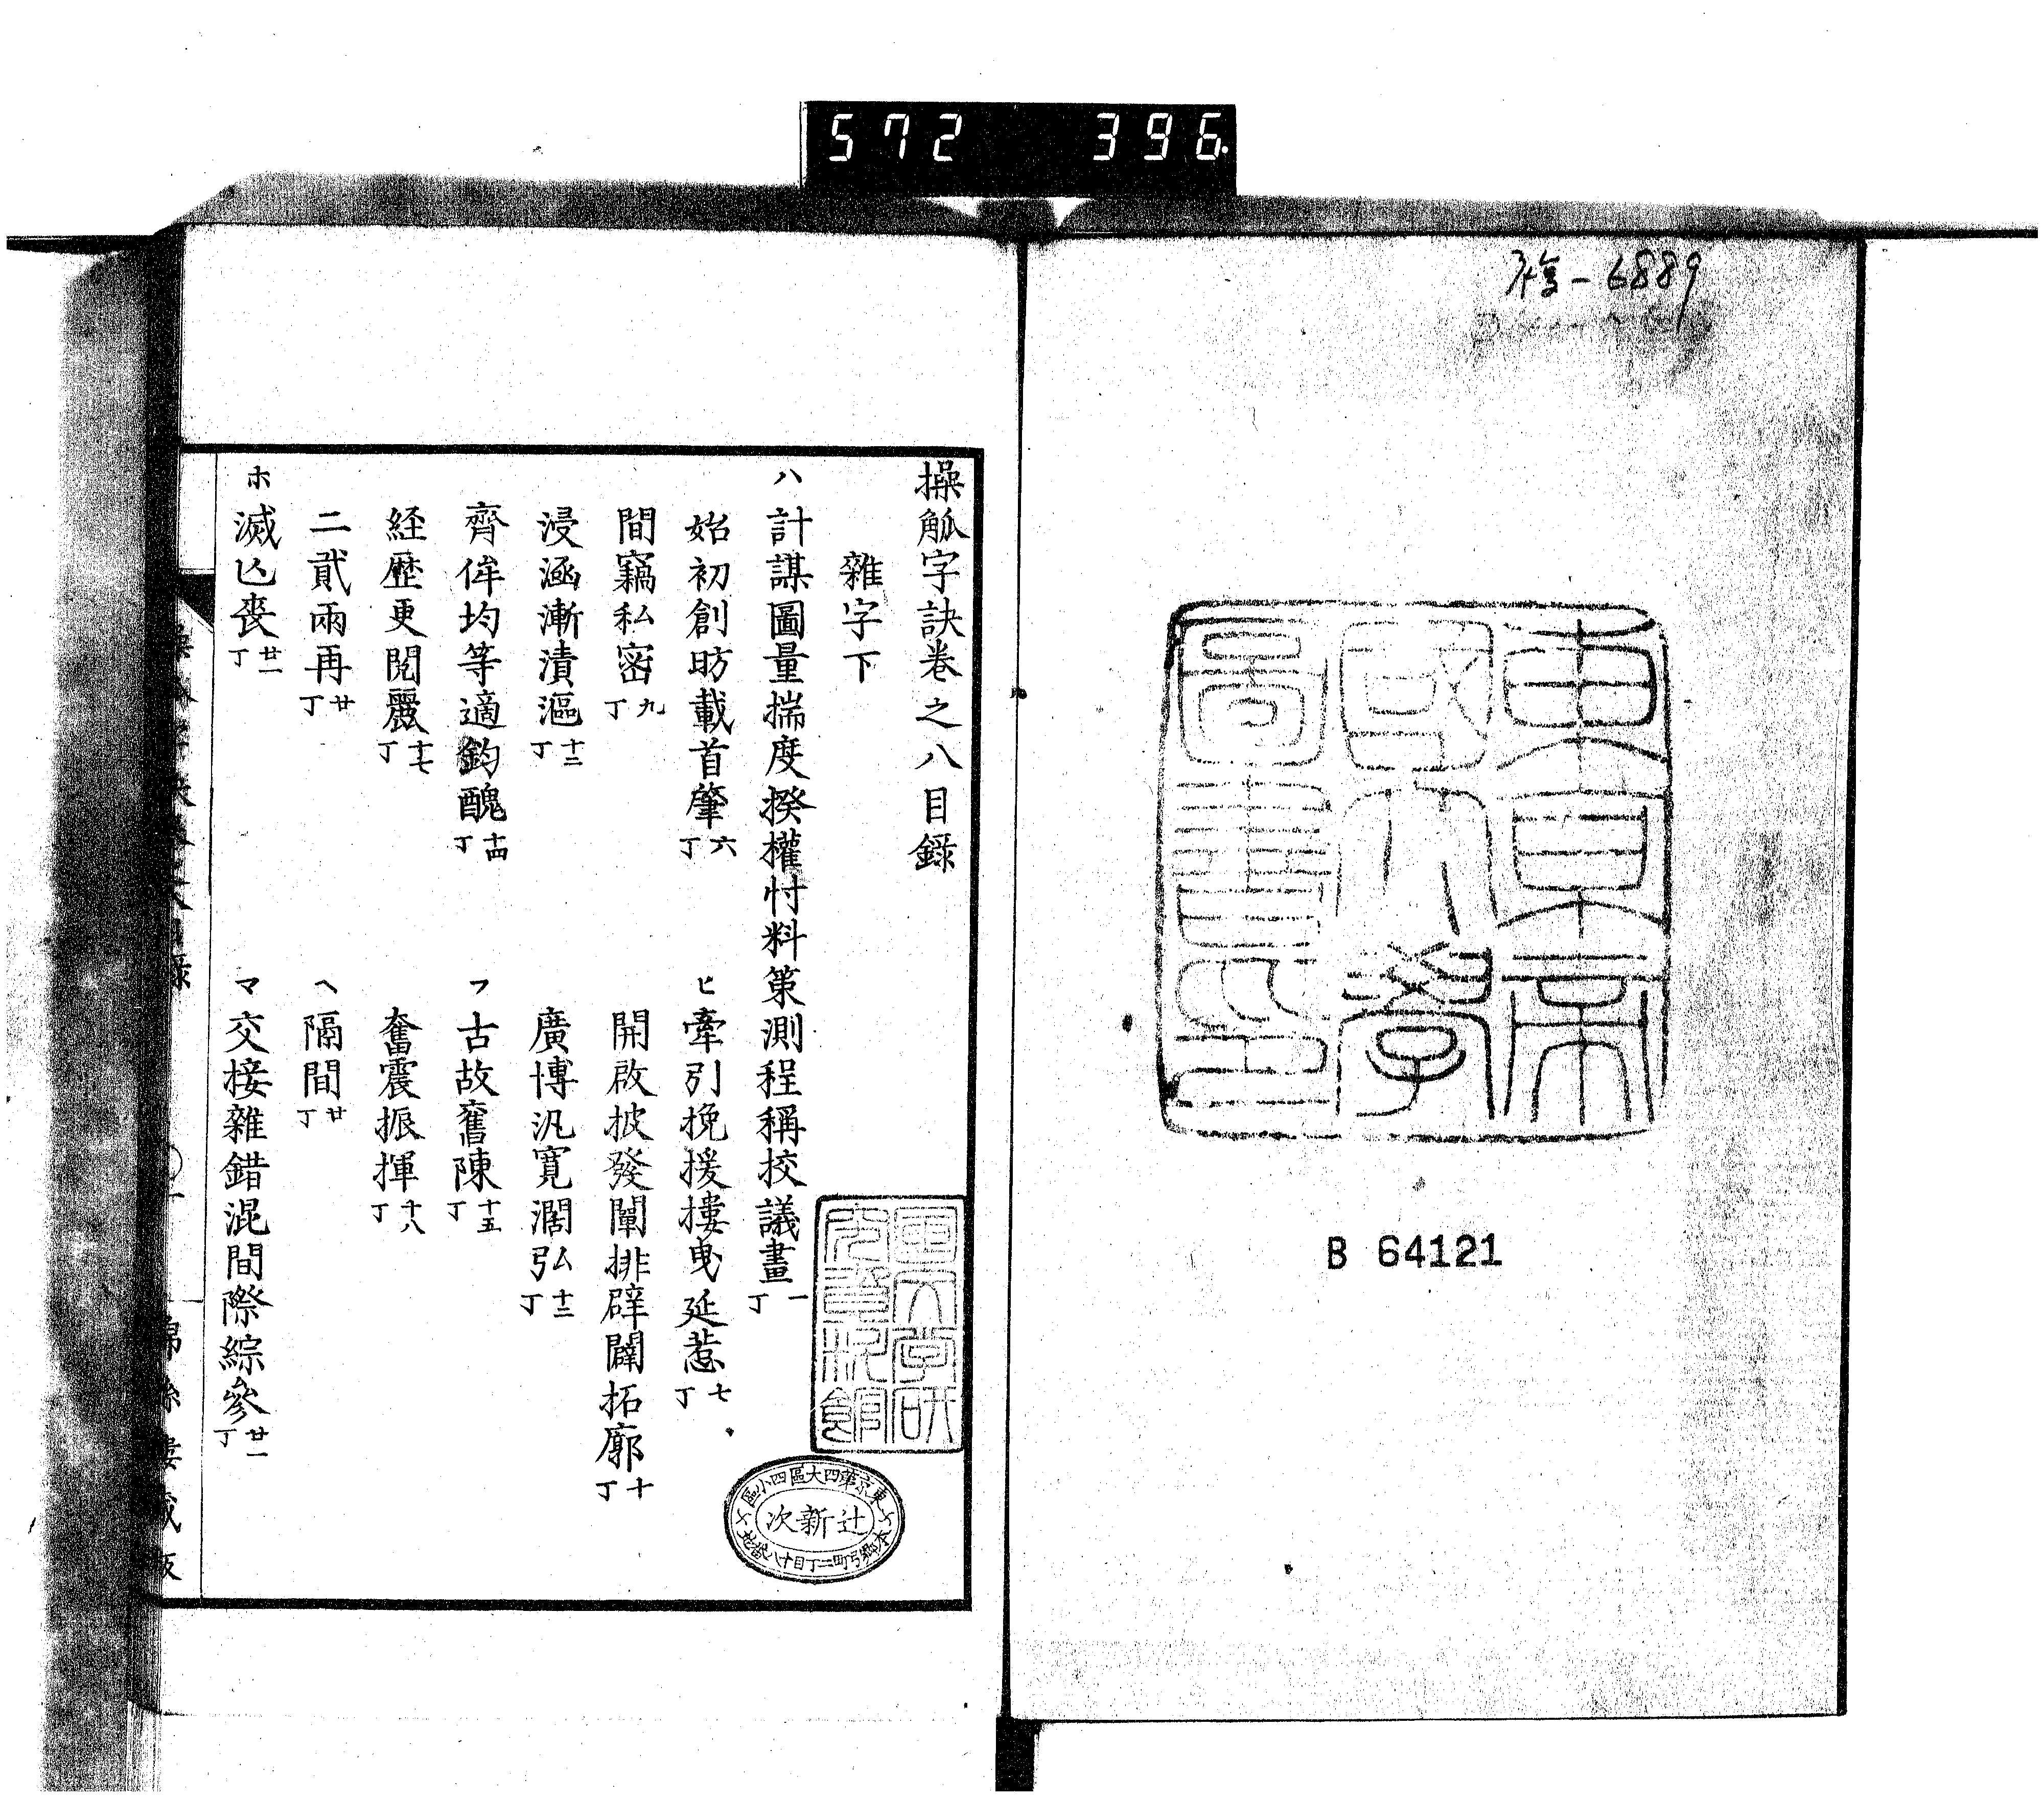 572 396
複-6889
東京帝
國大學
圖書印
B 64121
操觚字訣卷之八目錄
雜字下
ハ 計謀圖量揣度揆權忖料策測程稱挍議畫 一丁
始初創昉載首肇 六丁
ヒ 牽引挽援摟曳延惹 七丁
間竊私密 九丁
開啟披發闡排辟闢拓廓 十丁
浸涵漸漬漚 十二丁
廣博汎寬濶弘 十三丁
齊侔均等適鈞醜 十四丁
フ 古故舊陳 十五丁
経歷更閲嚴 十七丁
奮震振揮 十八丁
二貳兩再 廿丁
ヘ 隔間 廿丁
ホ 滅亾喪 廿一丁
マ 交接雜錯混間際綜參 廿一丁
東京第四大區四小區
本鄉弓町二丁目十八番地
辻新次